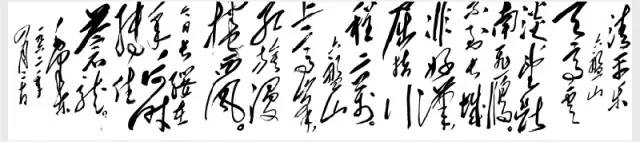 清平乐
六盘山
天高云
淡望断
南飞雁。
不到长城
非好漢
屈指行
程二万。
六盘山
上高峰
红旗漫
捲西風。
今日长缨在
手何时
缚住
苍龙。
毛泽东